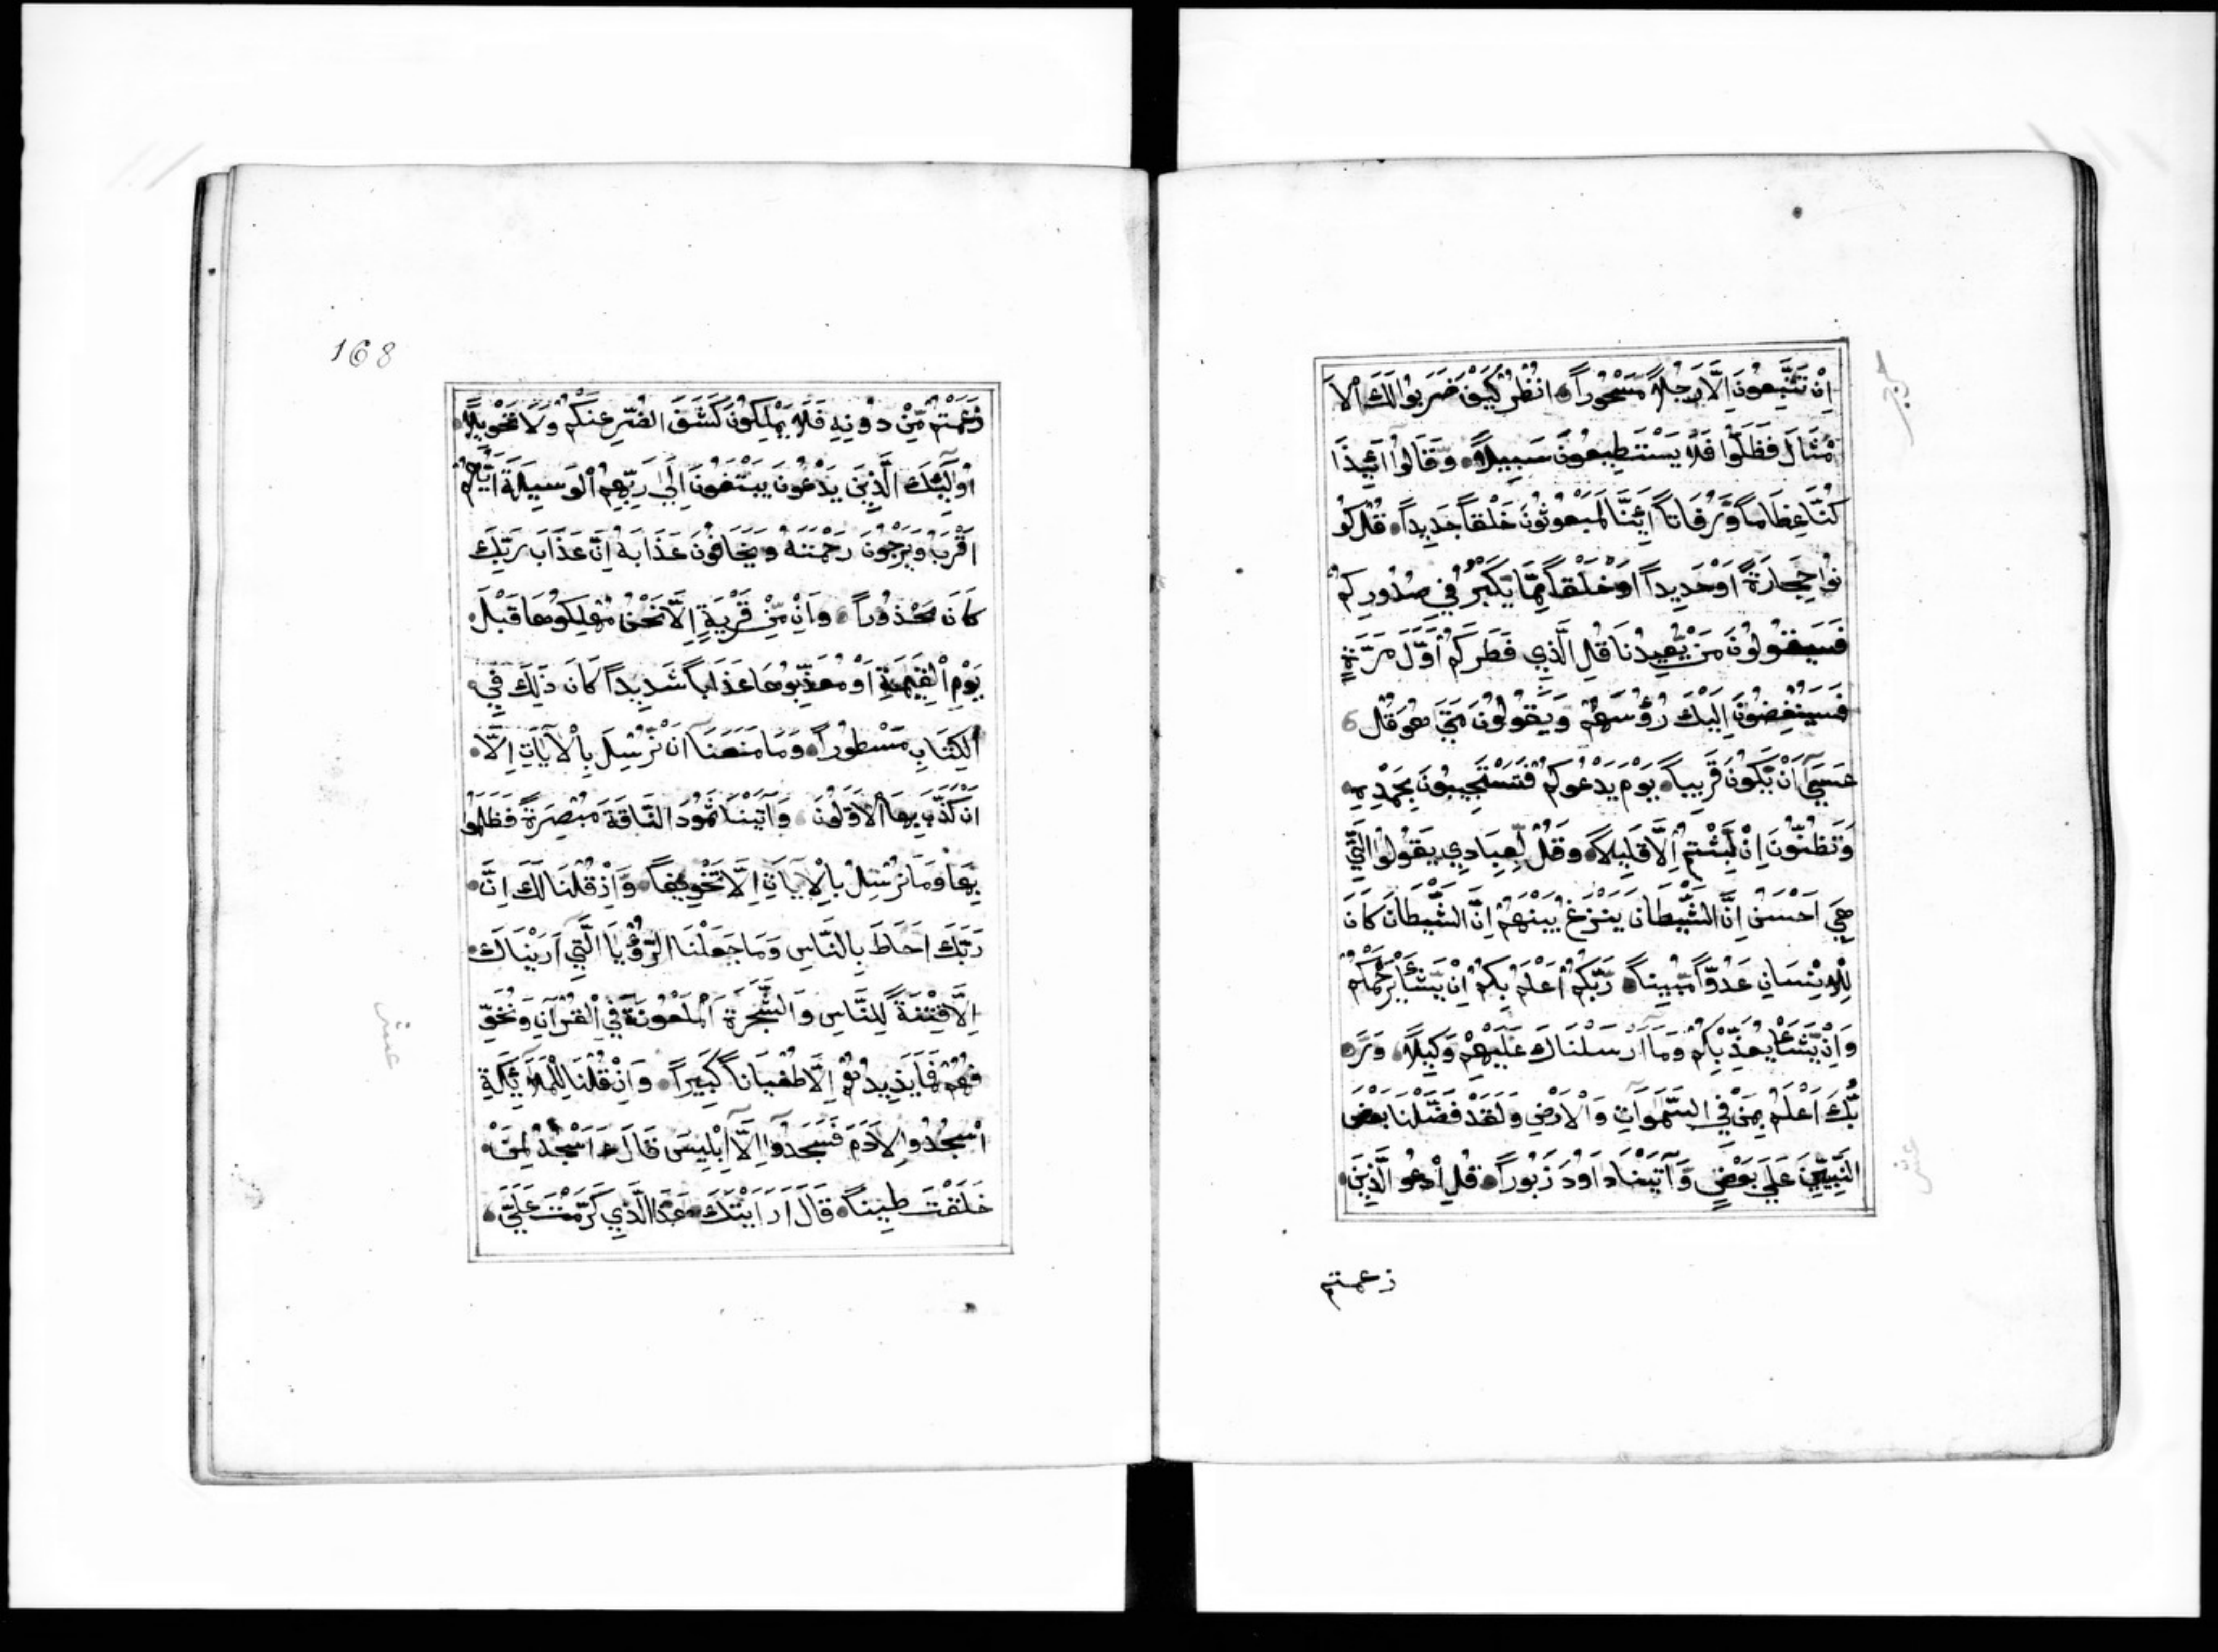 اِنْ تَتَّبِعُونَ اِلَّا رَجُلًا مَسْحُوراً انْظُرْ كَيْفَ ضَرَبُوا لَكَ الْاَ
مْثَالَ فَظَلُّوا فَلَا يَسْتَطِيعُونَ سَبِيلاً وَقَالُوا اَئِذَا
كُنَّا عِظَاماً وَرُفَاتاً اَئِنَّا لَمَبْعُوثُونَ خَلْقاً جَدِيداً قُلْ كُو
نُوا حِجَارَةً اَوْ حَدِيداً اَوْ خَلْقاً مِمَّا يَكْبُرُ فِي صُدُورِكُمْ
فَسَيَقُولُونَ مَنْ يُعِيدُنَا قُلِ الَّذِي فَطَرَكُمْ اَوَّلَ مَرَّةٍ
فَسَيُنْغِضُونَ اِلَيْكَ رُؤُسَهُمْ وَيَقُولُونَ مَتَى هُوَ قُلْ
عَسَى اَنْ يَكُونَ قَرِيباً يَوْمَ يَدْعُوكُمْ فَتَسْتَجِيبُونَ بِحَمْدِهِ
وَتَظُنُّونَ اِنْ لَبِثْتُمْ اِلَّا قَلِيلاً وَقُلْ لِعِبَادِي يَقُولُوا الَّتِي
هِيَ اَحْسَنُ اِنَّ الشَّيْطَانَ يَنْزَغُ بَيْنَهُمْ اِنَّ الشَّيْطَانَ كَانَ
لِلْاِنْسَانِ عَدُوّاً مُبِيناً رَبُّكُمْ اَعْلَمُ بِكُمْ اِنْ يَشَأْ يَرْحَمْكُمْ
وَاِنْ يَشَأْ يُعَذِّبْكُمْ وَمَا اَرْسَلْنَاكَ عَلَيْهِمْ وَكِيلاً وَرَ
بُّكَ اَعْلَمُ بِمَنْ فِي السَّمَوَاتِ وَالْاَرْضِ وَلَقَدْ فَضَّلْنَا بَعْضَ
النَّبِيِّينَ عَلَى بَعْضٍ وَآتَيْنَا دَاوُدَ زَبُوراً قُلِ ادْعُوا الَّذِينَ
زعمتم
168
زَعَمْتُمْ مِنْ دُونِهِ فَلَا يَمْلِكُونَ كَشْفَ الضُّرِّ عَنْكُمْ وَلَا تَحْوِيلاً
اُولَئِكَ الَّذِينَ يَدْعُونَ يَبْتَغُونَ اِلَى رَبِّهِمُ الْوَسِيلَةَ اَيُّهُمْ
اَقْرَبُ وَيَرْجُونَ رَحْمَتَهُ وَيَخَافُونَ عَذَابَهُ اِنَّ عَذَابَ رَبِّكَ
كَانَ مَحْذُوراً وَاِنْ مِنْ قَرْيَةٍ اِلَّا نَحْنُ مُهْلِكُوهَا قَبْلَ
يَوْمِ الْقِيَمَةِ اَوْ مُعَذِّبُوهَا عَذَاباً شَدِيداً كَانَ ذَلِكَ فِي
الْكِتَابِ مَسْطُوراً وَمَا مَنَعَنَا اَنْ نُرْسِلَ بِالْآيَاتِ اِلَّا
اَنْ كَذَّبَ بِهَا الْاَوَّلُونَ وَآتَيْنَا ثَمُودَ النَّاقَةَ مُبْصِرَةً فَظَلَمُوا
بِهَا وَمَا نُرْسِلُ بِالْآيَاتِ اِلَّا تَخْوِيفاً وَاِذْ قُلْنَا لَكَ اِنَّ
رَبَّكَ اَحَاطَ بِالنَّاسِ وَمَا جَعَلْنَا الرُّؤْيَا الَّتِي اَرَيْنَاكَ
اِلَّا فِتْنَةً لِلنَّاسِ وَالشَّجَرَةَ الْمَلْعُونَةَ فِي الْقُرْآنِ وَنُخَوِّ
فُهُمْ فَمَا يَزِيدُهُمْ اِلَّا طُغْيَاناً كَبِيراً وَاِذْ قُلْنَا لِلْمَلَائِكَةِ
اسْجُدُوا لِآدَمَ فَسَجَدُوا اِلَّا اِبْلِيسَ قَالَ ءَاَسْجُدُ لِمَنْ
خَلَقْتَ طِيناً قَالَ اَرَاَيْتَكَ هَذَا الَّذِي كَرَّمْتَ عَلَيَّ
عشر